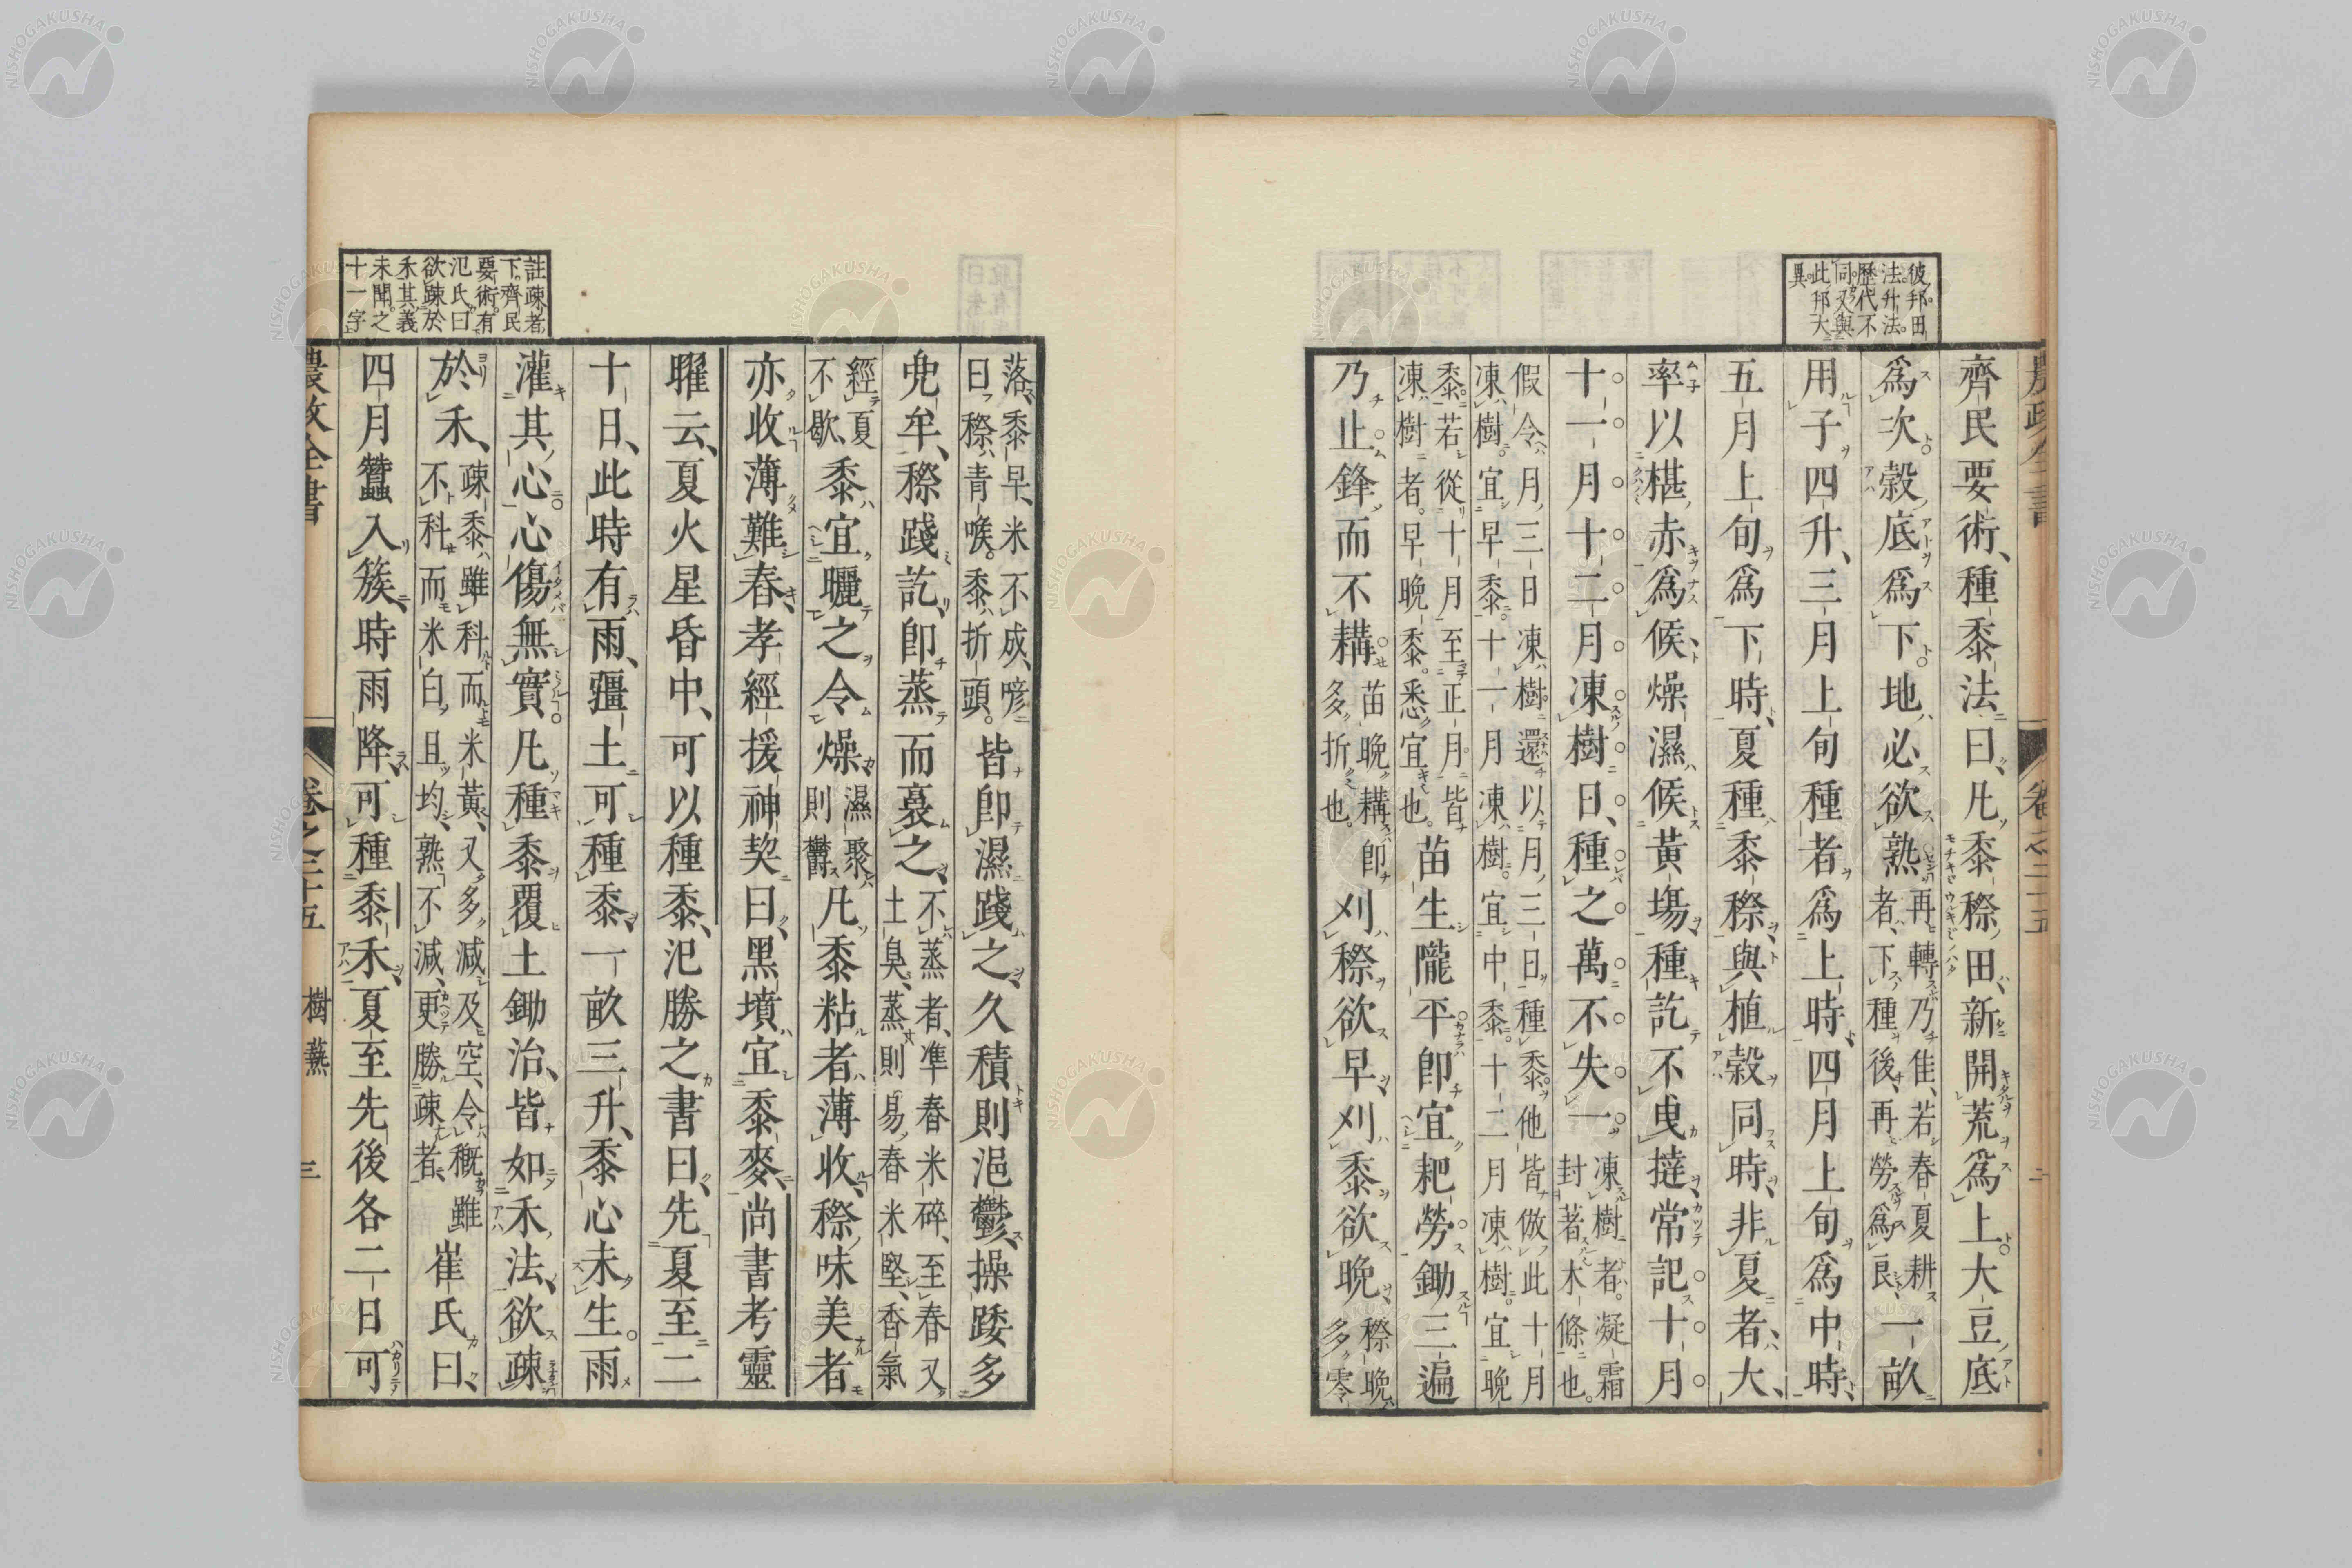 農政全書 卷之二十五 二
彼邦田
法升法
歷代不
同又與
此邦大
異
齊民要術、種黍法曰、凡黍穄田、新開荒爲上大豆底
爲次穀底爲下地必欲熟
再轉乃佳、若春夏耕
者、下種後、再勞爲良、
一畝
用子四升、三月上旬種者爲上時、四月上旬爲中時、
五月上旬爲下時、夏種黍穄、與植穀同時、非夏者、大
率以椹赤爲候、燥濕候黃塲、種訖不曳撻、常記十月
十一月十二月凍樹日、種之萬不失一
凍樹者。凝霜
封著木條也。
假令月三日凍樹還以月三日種黍。他皆倣此十月
凍樹宜早黍。十一月凍樹。宜中黍。十二月凍樹。宜晚
黍。若從十月至正月皆
凍樹者。早晚黍。悉宜也。
苗生隴平卽宜耙勞鋤三遍
乃止鋒而不耩
苗晚耩
多折也。
卽刈穄欲早、刈黍欲晚、
穄晚
多零
落、黍早、米不成、喭
曰穄青喉。黍折頭。
皆卽濕踐之、久積則浥鬱、操踒多
兠牟、穄踐訖、卽蒸而裛之、
不蒸者、準舂米碎、至舂又
土臭、蒸則易舂米堅、香氣
經夏
不歇、
黍宜曬之令燥、
濕聚
則鬱
凡黍粘者薄收、穄味美者
亦收薄難舂、孝經援神契曰、黑墳宜黍麥、尚書考靈
曜云、夏火星昏中、可以種黍、氾勝之書曰、先夏至二
十日、此時有雨、彊土可種黍、一畝三升、黍心未生雨
灌其心心傷無實凡種黍覆土鋤治、皆如禾法、欲疎
於禾、
疎黍雖科而米黃、又多減及空、今穊雖
不科而米白且均、熟不減、更勝疎者、
崔氏曰、
四月蠶入簇、時雨降、可種黍禾、夏至先後各二日可
註疎者
下齊民
要術有
氾氏曰
欲疎於
禾其義
未聞之
十一字
農政全書 卷之二十五 樹蓺 三
NISHOGAKUSHA